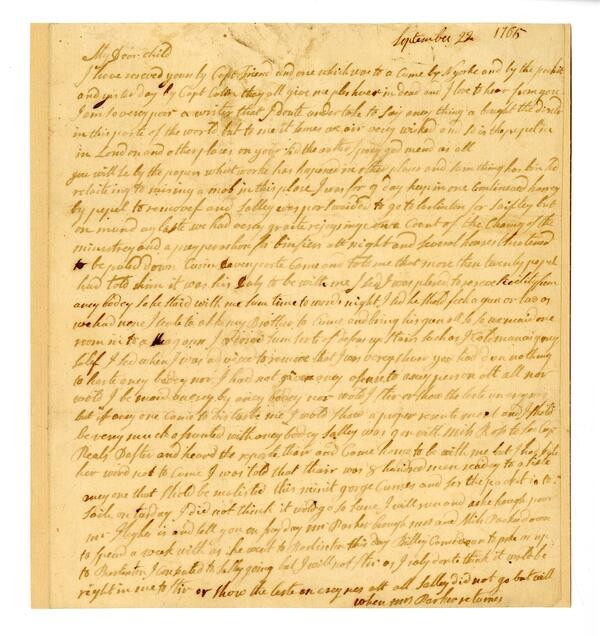 September 22 1765
My Dear child
I have reseved yours by Capt Friend and one which was to a Came by N yorke and by the packit
and yister day by Capt Cater they all give me plesher in dead and I love to hear from you
I am so very poor a writer that I donte under take to say aney thing a bought the disorder
in this porte of the world but to me it semes we air very wicked and so is the pepel in
in London and other places on your sid the water I pray god mend us all
you will se by the papers what worke has hapened in other places and sum thing has bin sed
relaiteing to raising a mob in this place I was for 9 day keep in one Contineued hurrey
by pepel to remove and Salley was porswaided to go to burlinton for saifty but
on munday laste we had verey graite rejoysing on a Count of the Chang of the
ministrey and a preyperaition for binfiers att night and several houses thretened
to be puled down Cusin Davenporte Come and tolde me that more then twenty pepel
had tolde him it was his Duty to be with me I sed I was plesed to reseve Sivility from
aney bodey so he staid with me sum time to words night I sed he shold fech a gun or two as
we had none I sente to aske my Brother to Cume and bring his gun all so so we maid one
room into a Magazin I ordored sum sorte of defens up Stairs such as I Cold manaig my
self I sed when I was advised to remove that I was very shuer you had dun nothing
to hurte aney bodey nor I had not given aney ofense to aney person att all nor
wold I be maid unesey by aney bodey nor wold I stir or show the leste uneseynis
but if aney one Came to disturbe me I wold show a proper resentement and I shold
be very much afrunted with aney bodey Salley was gon with Miss Ross to see Capt
Reals Dafter and heard the reporte thair and Came home to be with me but I had sente
her word not to Come I was told that thair was 8 hundred men readey to asiste
aney one that shold be molisted this minit gorge Cumes and ses the packit is to
saile on tusday I did not think it wold go so sune I will run and aske hough poor
mr Hughes is and tell you on fryday mr Parker brough mrs and Miss Parker down
to spend a week with us he wente to Burlinton this day Billey Came down to aske us up
to Burlinton I consented to Salley going but I will not stir as I raly donte think it wold be
wright in me to stir or show the leste uneseynes att all Salley did not go but will
when mrs Parker retornes